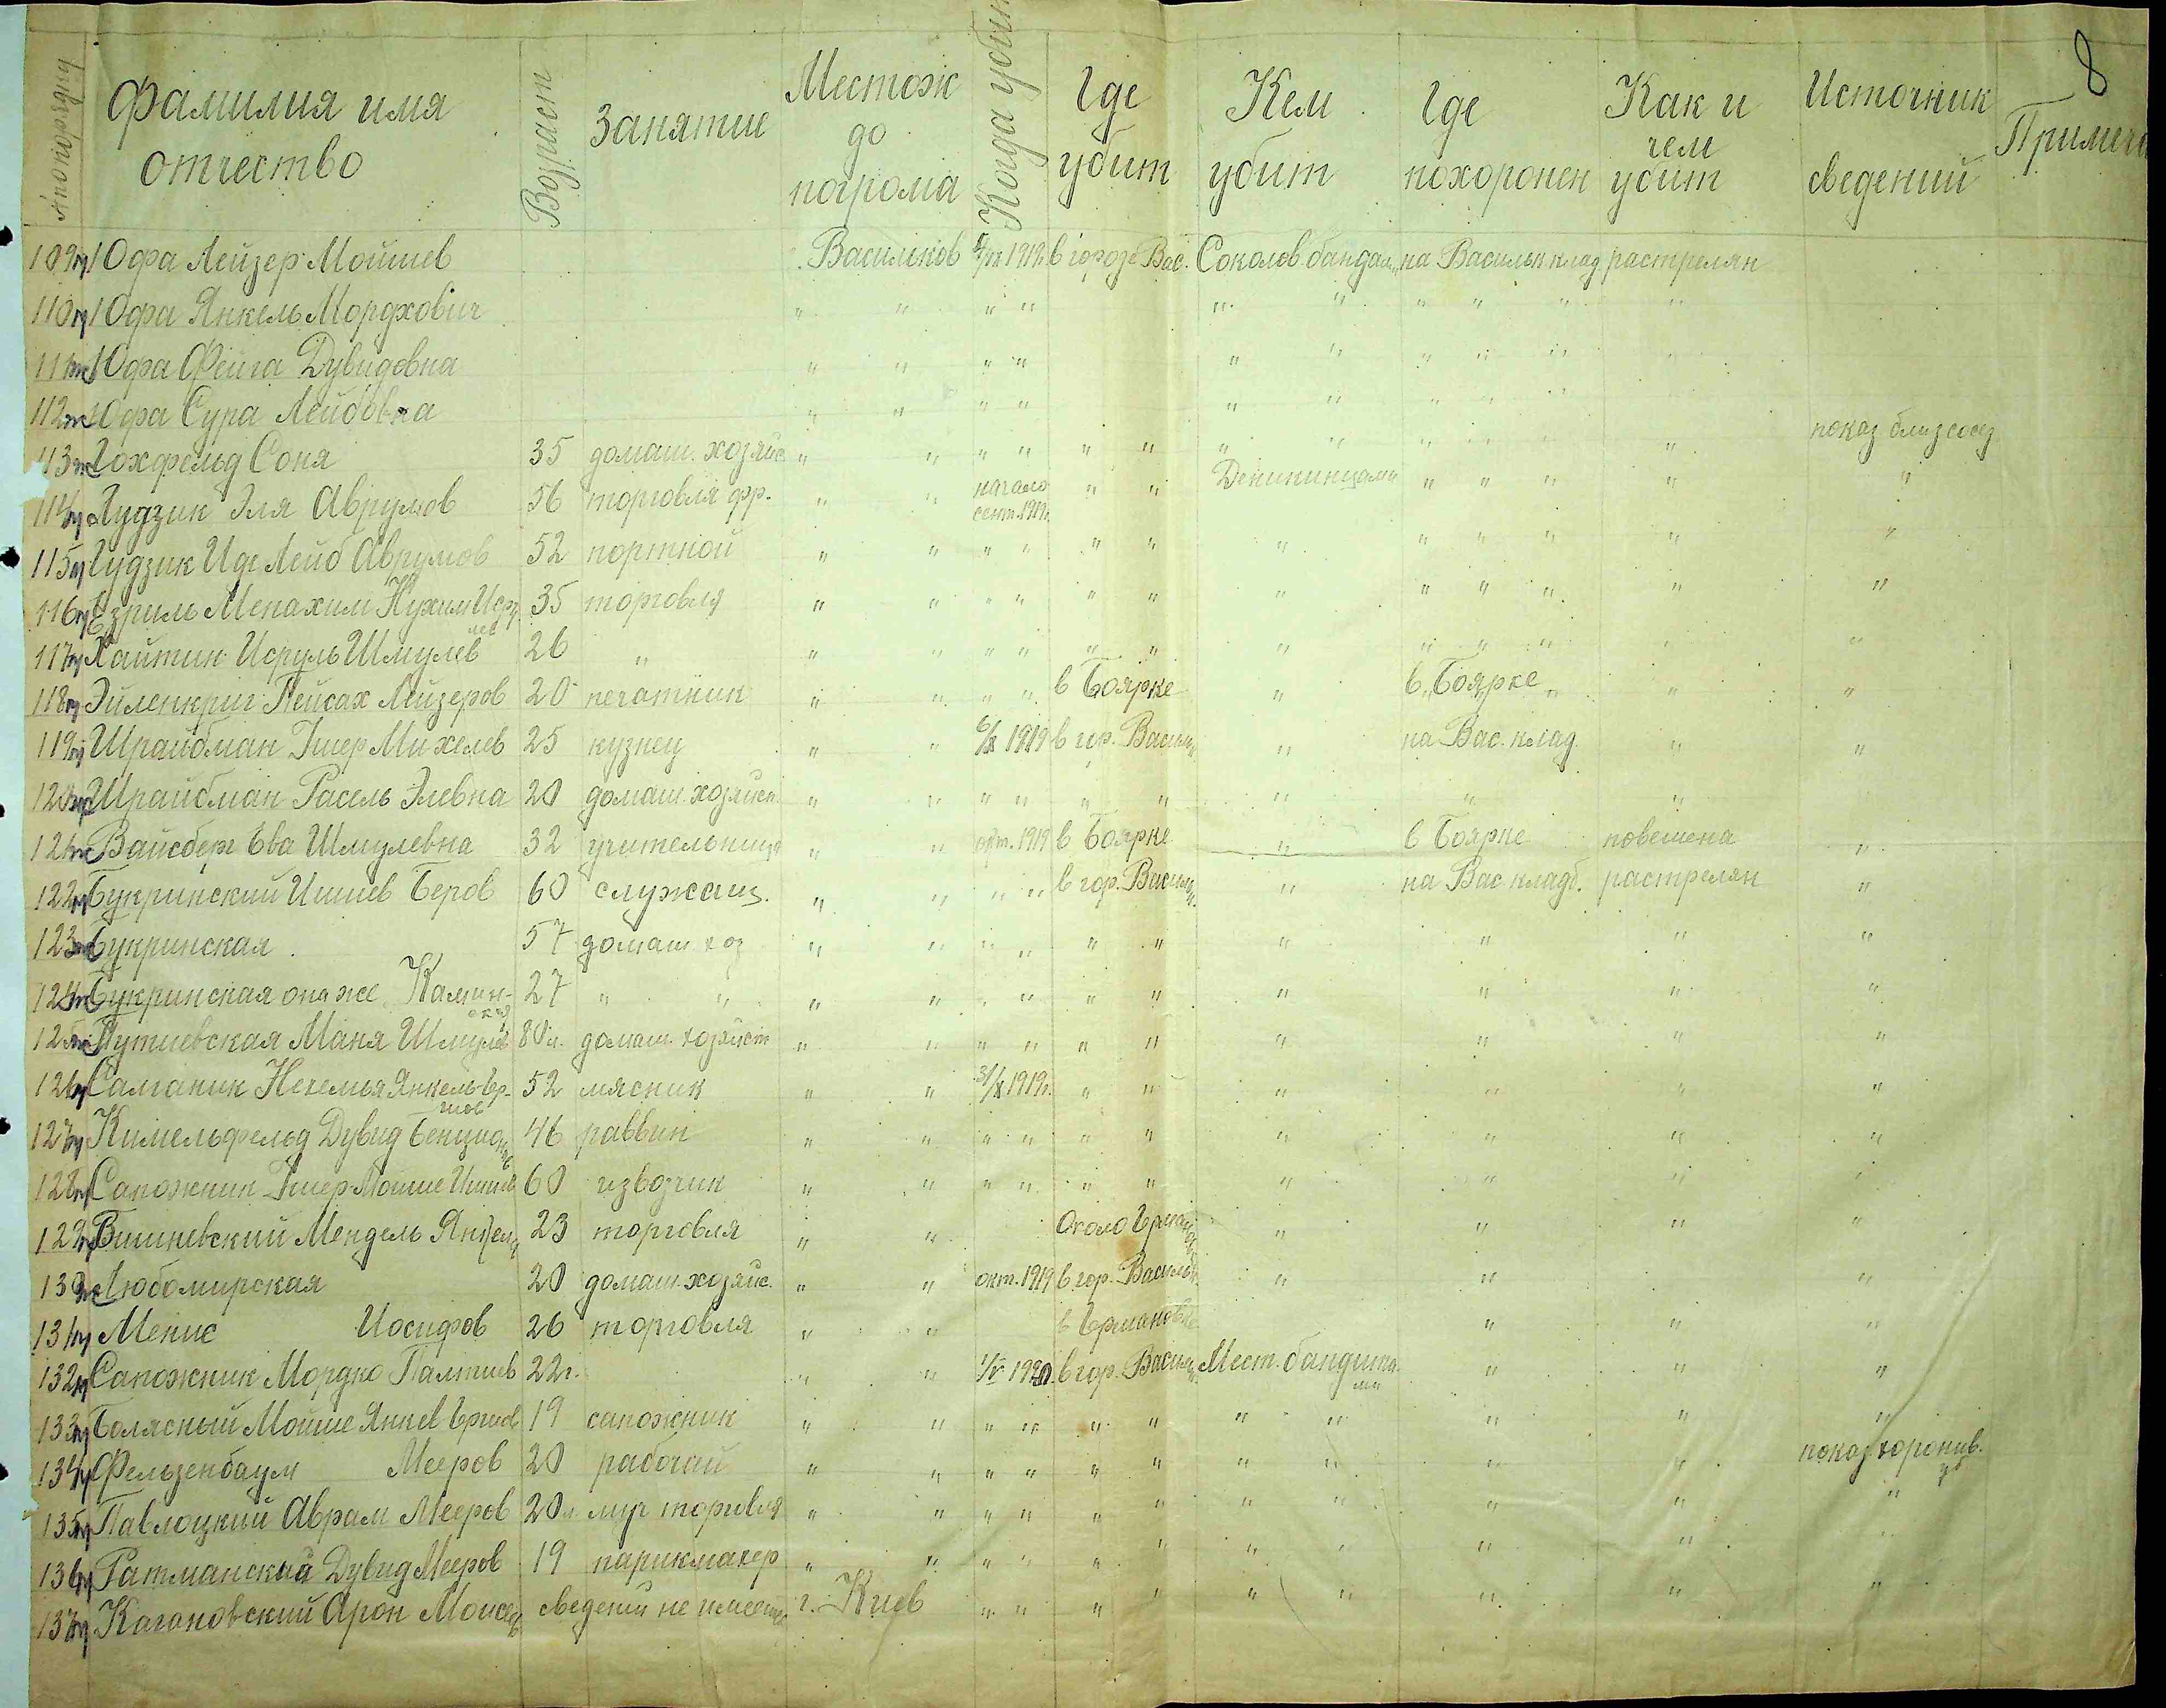 8
№ по порядку Фамилия имя отчество Возраст Занятие Местож до погрома Когда убит Где убит Кем убит Где похоронен Как и чем убит Источник сведений Примеча
109 м Юфа Лейзер Мойшев Васильков 1919 в городе Вас. Соколов. бандами на Васильк клад растрелян
110 м Юфа Янкель Мордхович " " " " " " " " " "
111 ж Юфа Фейга Дувидовна " " " " " " " " "
112 ж Юфа Сура Лейбовна " " " " " " " " "
113 ж Гохфельд Соня 35 домаш. хозяйс " " " " " " " " " " " " показ близ сосед
114 м Гудзик Эля Аврумов 56 торговля фр. " " начало сент. 1919г. " " Деникинцами " " " " "
115 м Гудзик Иде Лейб Аврумов 52 портной " " " " " " " " " " " "
116 м Езриль Менахим Нухим 35 торговля " " " " " " " " " " " "
117 м Хайтин Исруль Шмулев 26 " " " " " " " " " " " " "
118 м Эйленкриг Пейсах Лейзеров 20 печатник " " " " в Боярке " в Боярке " " "
119 м Шрайбман Ишер Михелев 25 кузнец " " 6/IX 1919 в гор. Васильк " на Вас. клад. " "
120 ж Шрайбман Расель Элевна 20 домаш. хозяйст. " " " " " " " " "
121 ж Вайсберг Ева Шмулевна 32 учительница " " окт. 1919 в Боярке " в Боярке повешена "
122 м Букринский Ишиев Беров 60 служащ. " " " " в гор. Васильк. " на Вас кладб. растрелян "
123 ж Букринская 57 домаш хоз " " " " " " " " " "
124 ж Букринская она же Каминская 27 " " " " " " " " " " " "
125 ж Путиевская Маня Шмулев 80 л. домаш. хозяйст " " " " " " " " " "
126 м Салганик Нехемья Янкель Ершов 52 мясник " " 1919г. " " " " " "
127 м Кимельфельд Дувид Бенционов 46 раввин " " " " " " " " " "
128 м Сапожник Ишер-Мойше 60 извозчик " " " " " " " " " "
129 м Вишневский Мендель Янкелев 23 торговля " " около Германовки " " " "
130 ж Любомирская 20 домаш. хозяйс. " " окт. 1919 в гор. Васильк " " "
131 м Менис Иосифов 26 торговля " " в Германовке " " "
132 м Сапожник Мордко Палтиев 22 г. " " 1920 в гор. Васильк Мест. бандитами " " "
133 м Болясный Мойше Янкев Ершов 19 сапожник " " " " " " " " " " "
134 м Фельзенбаум Мееров 20 рабочий " " " " " " " " " " показ хоронив.
135 м Павлоцкий Аврам Мееров 20 л. муч торговля " " " " " " " " " " "
136 м Ратманский Дувид Мееров 19 парикмахер " " " " " " " " " " "
137 м Кагановский Арон Моисеев сведений не имеется г. Киев " " " " " " " " "